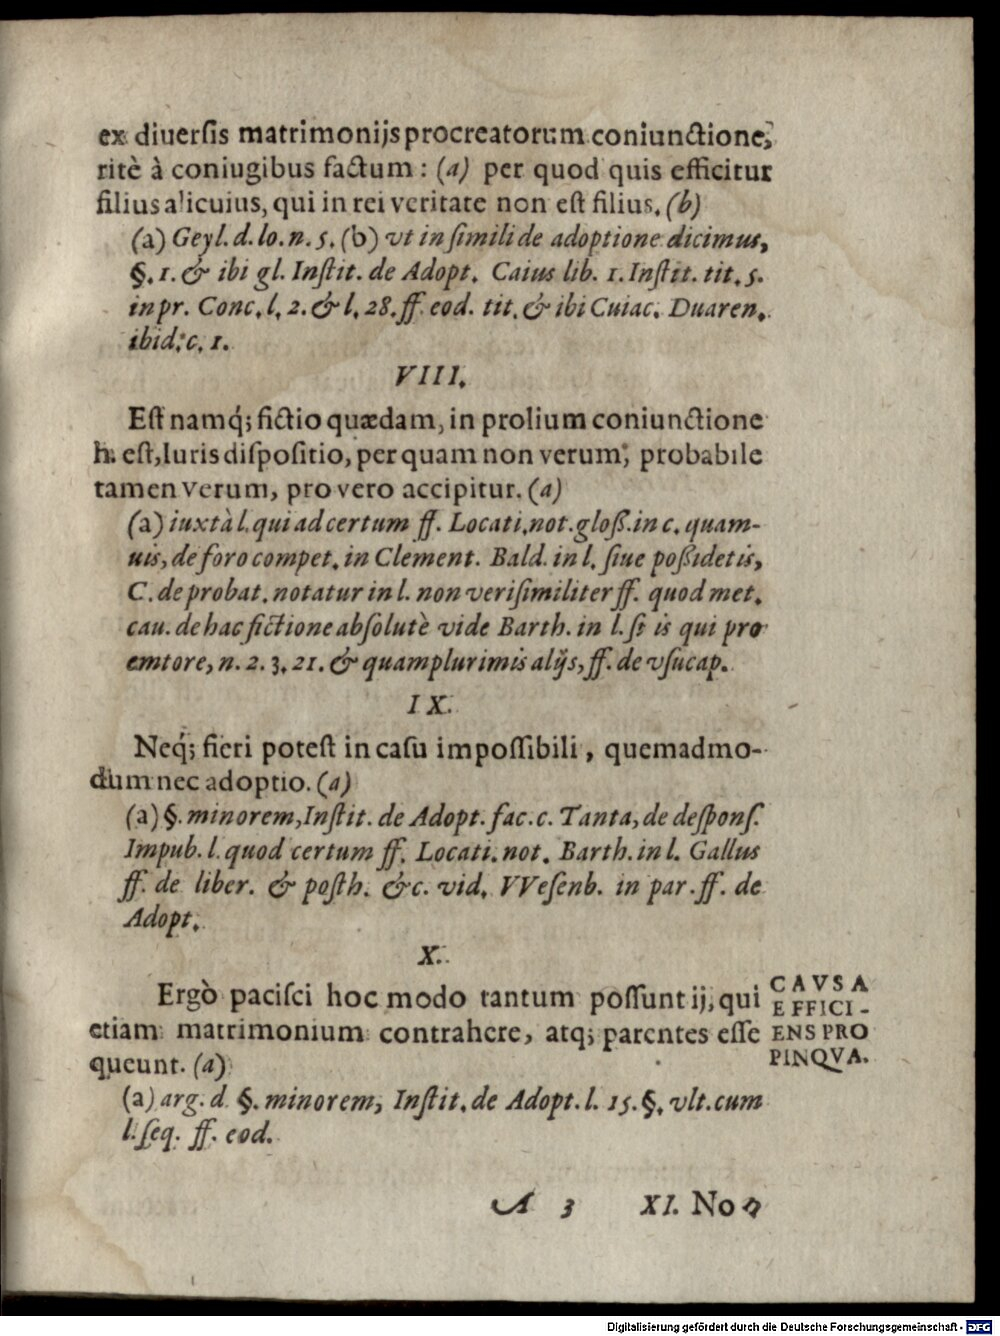 ex diuerſis matrimonijs procreatorum coniunctione,
ritè à coniugibus factum : (a) per quod quis efficitur
filius alicuius, qui in rei veritate non eſt filius. (b)
(a) Geyl. d. lo. n. 5. (b) vt in ſimili de adoptione dicimus,
§. 1. & ibi gl. Inſtit. de Adopt. Caius lib. 1. Inſtit. tit. 5.
in pr. Conc. l. 2. & l. 28. ff. eod. tit. & ibi Cuiac. Duaren.
ibid. c. 1.
VIII.
Eſt namq́; fictio quædam, in prolium coniunctione
h. eſt, Iuris diſpoſitio, per quam non verum, probabile
tamen verum, pro vero accipitur. (a)
(a) iuxtà l. qui ad certum ff. Locati. not. gloß. in c. quam-
uis, de foro compet. in Clement. Bald. in l. ſiue poßidetis,
C. de probat. notatur in l. non veriſimiliter ff. quod met.
cau. de hac fictione abſolutè vide Barth. in l. ſi is qui pro
emtore, n. 2. 3. 21. & quamplurimis alijs, ff. de vſucap.
IX.
Neq́; fieri poteſt in caſu impoſſibili, quemadmo-
dum nec adoptio. (a)
(a) §. minorem, Inſtit. de Adopt. fac. c. Tanta, de deſponſ.
Impub. l. quod certum ff. Locati. not. Barth. in l. Gallus
ff. de liber. & poſth. &c. vid. VVeſenb. in par. ff. de
Adopt.
X.
Ergò paciſci hoc modo tantum poſſunt ij, qui
etiam matrimonium contrahere, atq; parentes eſſe
queunt. (a)
CAVSA
EFFICI-
ENS PRO
PINQVA.
(a) arg. d. §. minorem, Inſtit. de Adopt. l. 15. §. vlt. cum
l. ſeq. ff. eod.
A 3 XI. No-
Digitalisierung gefördert durch die Deutsche Forschungsgemeinschaft - DFG